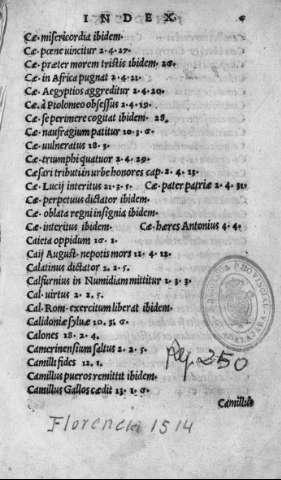 INDEX
Cæ misericordia ibidem.
Cæ pœne uincitur 2.4.27.
Cæ præter morem tristis ibidem 26.
Cæ in Africa pugnat 2.4.21.
Cæ Aegyptios aggreditur 2.4.20.
Cæ. à Ptolomeo obsessus 2.4.19.
Cæ se perimere cogitat ibidem. 28.
Cæ naufragium patitur 10.3.6.
Cæ uulneratus 18.3.
Cæ triumphi quatuor 2.4.29.
Cæsari tributi in urbe honores cap. 2.4.13.
Cæ Lucij interitus 21.3.5. Cæ pater patriæ 2.4.31.
Cæ perpetuus dictator ibidem.
Cæ oblata regni insignia ibidem.
Cæ interitus ibidem. Cæ hæres Antonius 4.4.
Caieta oppidum 16.1.
Caij August. nepotis mors 11.4.12.
Calatinus dictator 2.2.5.
Calfurnius in Numidiam mittitur 1.3.3
Cal. uirtus 2.2.5.
Cal. Rom. exercitum liberat ibidem.
Calidoniæ syluæ 10.3.6.
Calones 18.2.4.
Camerinensium saltus 2.2.5.
Camilli fides 12.1.
Camillus pueros remittit ibidem.
Camillus Gallos cædit 13.1.6.
Camillus
250
Florencia 1514